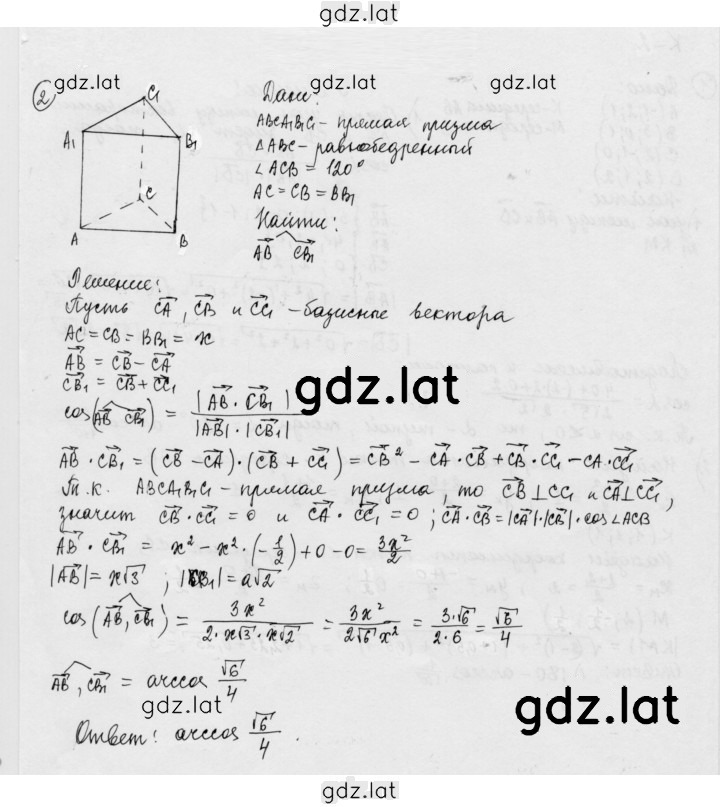 gdz.lat
2
gdz.lat
C₁
A₁
B₁
C
A
B
Дано:
ABCA₁B₁C₁ - прямая призма
△ABC - равнобедренный
∠ACB = 120°
AC = CB = BB₁
Найти:
AB⃗ CB₁⃗
Решение:
Пусть CA⃗, CB⃗ и CC₁⃗ - базисные вектора
AC = CB = BB₁ = x
AB⃗ = CB⃗ - CA⃗
CB₁⃗ = CB⃗ + CC₁⃗
cos(AB⃗ CB₁⃗) = |AB⃗ · CB₁⃗| / |AB⃗| · |CB₁⃗|
gdz.lat
AB⃗ · CB₁⃗ = (CB⃗ - CA⃗) · (CB⃗ + CC₁⃗) = CB⃗² - CA⃗ · CB⃗ + CB⃗ · CC₁⃗ - CA · CC₁⃗
Т.к. ABCA₁B₁C₁ - прямая призма то CB⃗ ⊥ CC₁ и CA⃗ ⊥ CC₁⃗,
значит CB⃗ · CC₁⃗ = 0 и CA⃗ · CC₁⃗ = 0; CA⃗ · CB⃗ = |CA⃗| · |CB⃗| · cos∠ACB
AB⃗ · CB₁⃗ = x² - x² · (-1/2) + 0 - 0 = 3x²/2
|AB⃗| = x√3; |CB₁⃗| = a√2
cos(AB⃗, CB₁⃗) = 3x² / 2 · x√3 · x√2 = 3x² / 2√6 x² = 3·√6 / 2·6 = √6/4
AB⃗, CB₁⃗ = arccos √6/4
gdz.lat
gdz.lat
Ответ: arccos √6/4.
gdz.lat